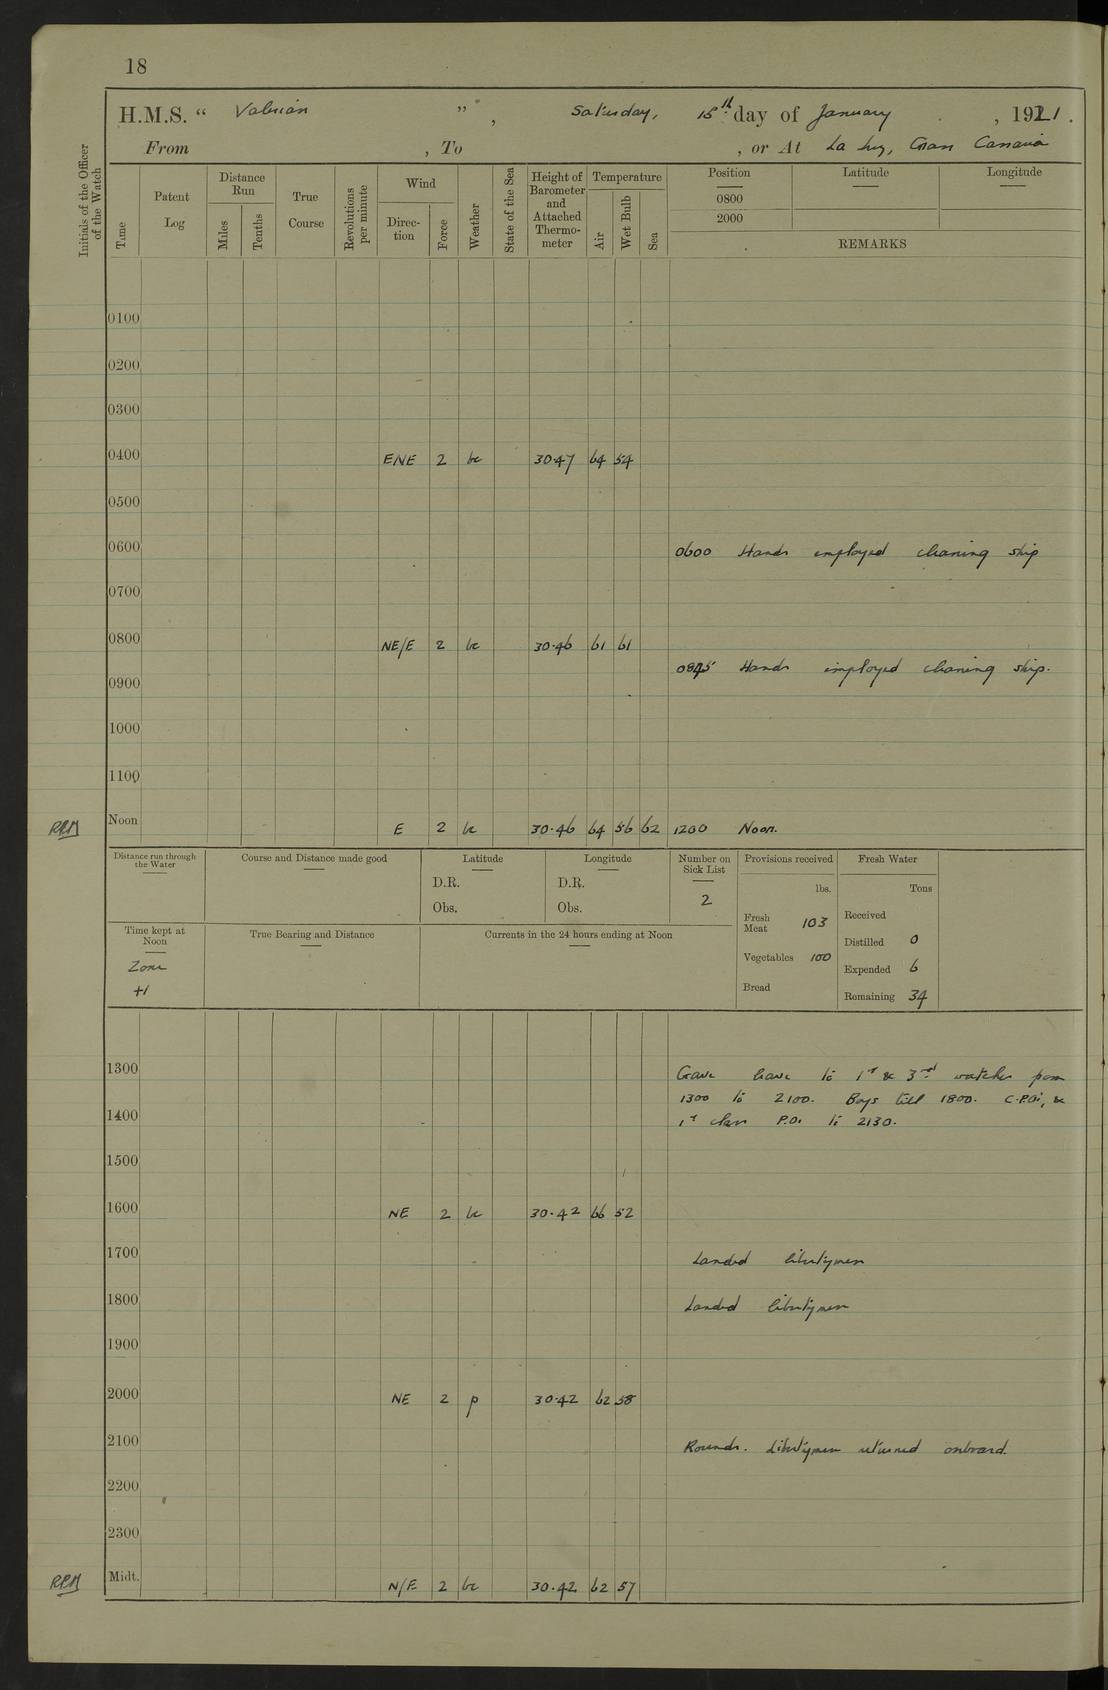 18
H.M.S. " Valerian ", Saturday, 15th day of January, 1921.
From , To , or At La Luz, Gran Canaria
Initials of the Officer of the Watch
Time
Patent Log
Distance Run
Miles
Tenths
True Course
Revolutions per minute
Wind
Direction
Force
Weather
State of the Sea
Height of Barometer and Attached Thermometer
Temperature
Air
Wet Bulb
Sea
Position Latitude Longitude
0800
2000
REMARKS
0100
0200
0300
0400 ENE 2 bc 30.47 64 54
0500
0600 0600 Hands employed cleaning ship
0700
0800 NE/E 2 bc 30.46 61 61
0845 Hands employed cleaning ship.
0900
1000
1100
RRM Noon E 2 bc 30.46 64 56 62 1200 Noon.
Distance run through the Water
Course and Distance made good
Latitude
D.R.
Obs.
Longitude
D.R.
Obs.
Number on Sick List
2
Provisions received
lbs.
Fresh Meat 103
Vegetables 100
Bread
Fresh Water
Tons
Received
Distilled 0
Expended 6
Remaining 34
Time kept at Noon
Zone
+1
True Bearing and Distance
Currents in the 24 hours ending at Noon
1300 Gave leave to 1st & 3rd watches from
1300 to 2100. Boys till 1800. C.P.O's, &
1400 1st class P.O. to 2130.
1500
1600 NE 2 bc 30.42 66 52
1700 Landed libertymen
1800 Landed libertymen
1900
2000 NE 2 p 30.42 62 58
2100 Rounds. Libertymen returned onboard.
2200
2300
RRM Midt. N/E 2 bc 30.42 62 57